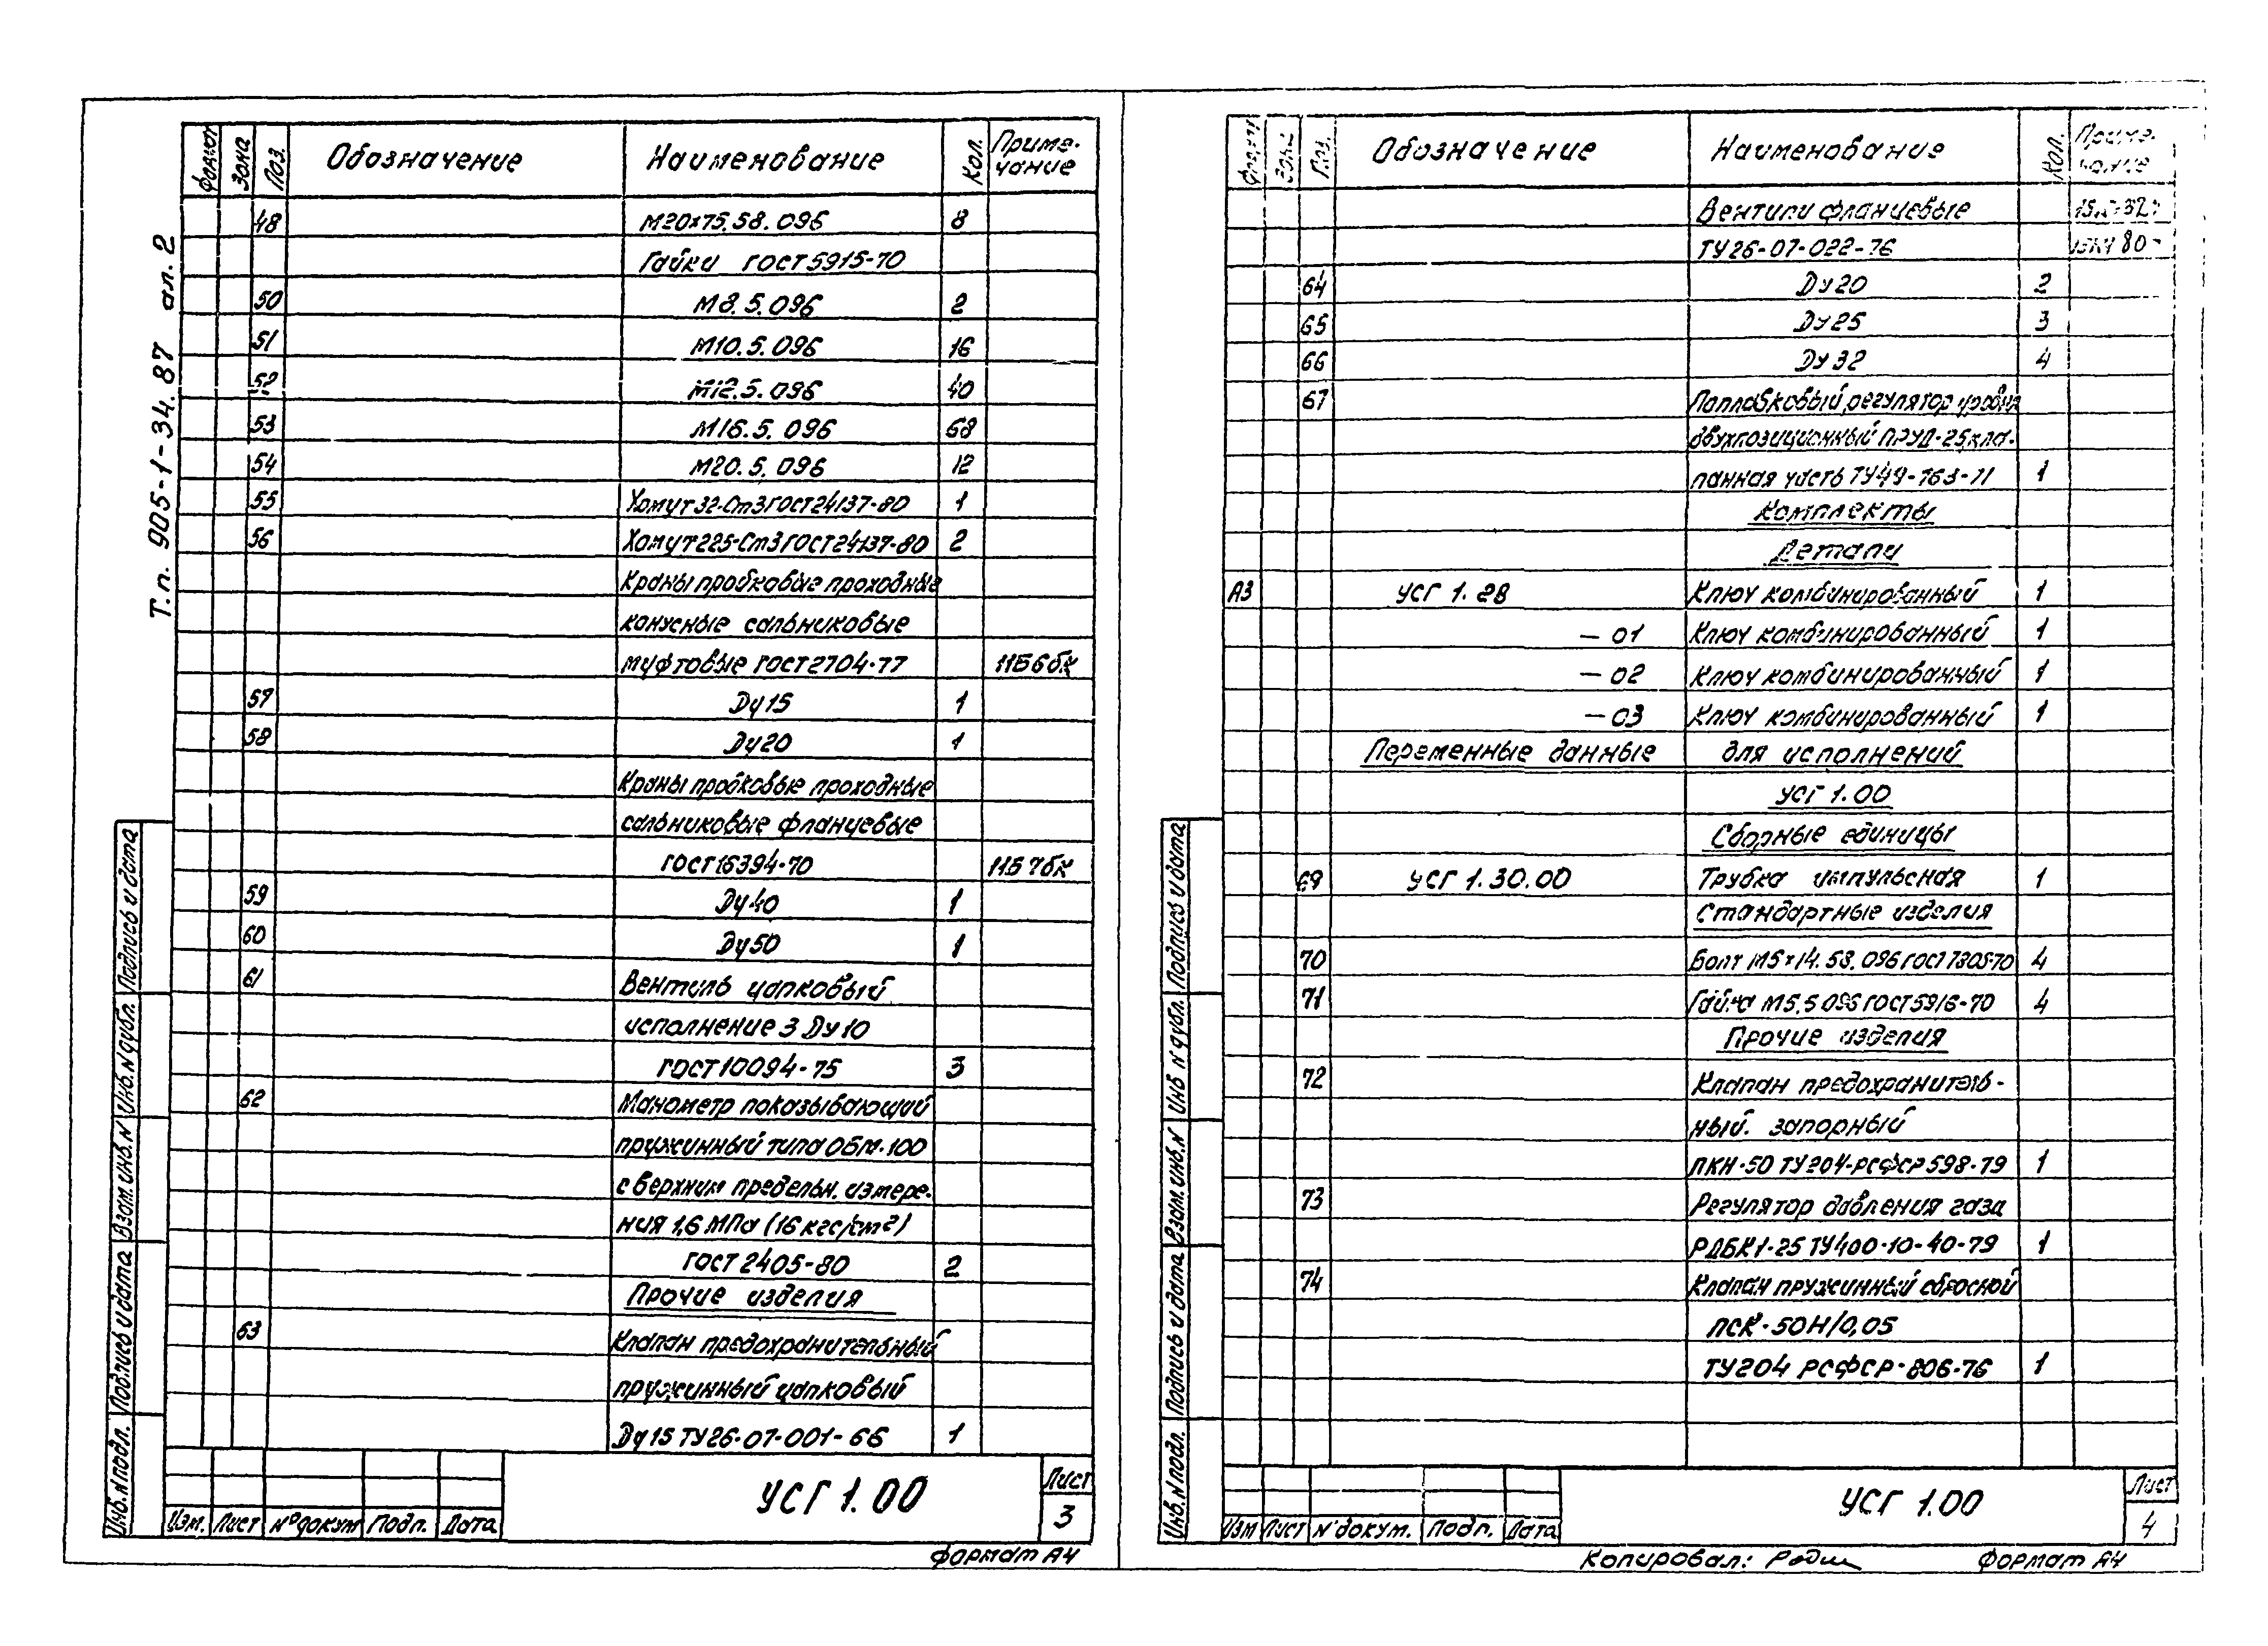 Т.п. 905-1-34.87 ал. 2
Формат Зона Поз. Обозначение Наименование Кол. Примечание
48 М20х75.58.096 8
Гайки ГОСТ 5915-70
50 М8.5.096 2
51 М10.5.096 16
52 М12.5.096 40
53 М16.5.096 68
54 М20.5.096 12
55 Хомут 32-Ст3 ГОСТ 24137-80 1
56 Хомут 225-Ст3 ГОСТ 24137-80 2
Краны пробковые проходные
конусные сальниковые
муфтовые ГОСТ 2704-77 11Б6бк
57 Ду15 1
58 Ду20 1
Краны пробковые проходные
сальниковые фланцевые
ГОСТ 16394-70 11Б7бк
59 Ду40 1
60 Ду50 1
61 Вентиль цапковый
исполнение 3 Ду10
ГОСТ 10094-75 3
62 Манометр показывающий
пружинный типа ОБМ-100
с верхним предельн. измере-
ния 1,6 МПа (16 кгс/см²)
ГОСТ 2405-80 2
Прочие изделия
63 Клапан предохранительный
пружинный цапковый
Ду15 ТУ26-07-001-66 1
Инв. N подл. Подпись и дата Взам. инв. N Инв. N дубл. Подпись и дата
Изм. Лист N° докум Подп. Дата
УСГ 1.00
Лист
3
Формат А4
Формат Зона Поз. Обозначение Наименование Кол. Примечание
Вентили фланцевые
ТУ26-07-022-76
64 Ду20 2
65 Ду25 3
66 Ду32 4
67 Поплавковый регулятор уровня
двухпозиционный ПРУД-25 кла-
панная часть 1
Комплекты
Детали
А3 УСГ 1.28 Ключ комбинированный 1
-01 Ключ комбинированный 1
-02 Ключ комбинированный 1
-03 Ключ комбинированный 1
Переменные данные для исполнений
УСГ 1.00
Сборные единицы
69 УСГ 1.30.00 Трубка импульсная 1
Стандартные изделия
70 Болт М5х14.58.096 ГОСТ 7805-70 4
71 Гайка М5.5.096 ГОСТ 5916-70 4
Прочие изделия
72 Клапан предохранитель-
ный запорный
ПКН-50 ТУ204-РСФСР 598-79 1
73 Регулятор давления газа
РДБК1-25 ТУ400-10-40-79 1
74 Клапан пружинный сбросной
ПСК-50Н/0,05
ТУ204 РСФСР-806-76 1
Инв. N подл. Подпись и дата Взам. инв. N Инв N дубл. Подпись и дата
Изм Лист N докум. Подп. Дата
УСГ 1.00
Лист
4
Копировал:
Формат А4